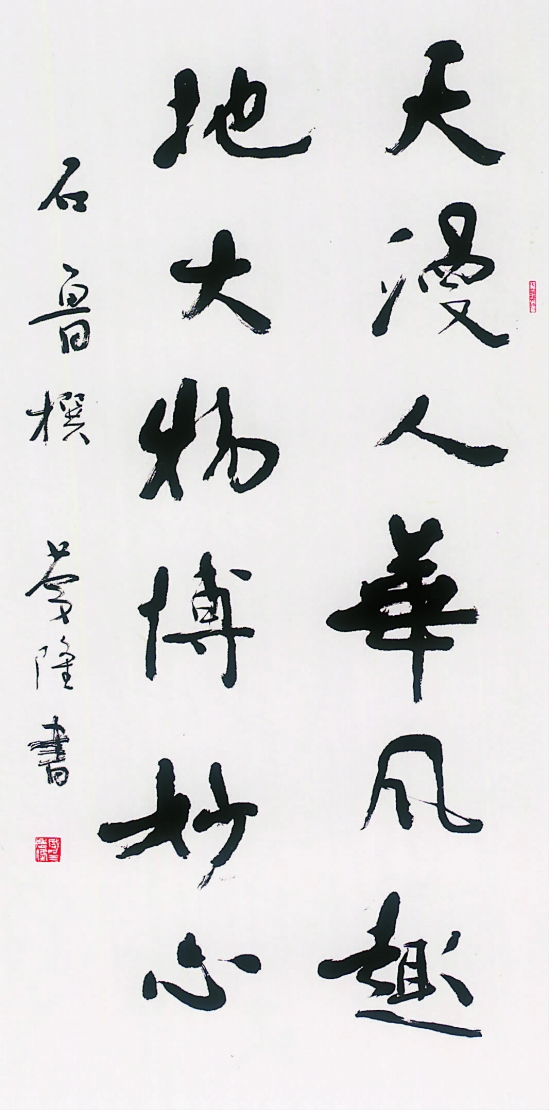 天漫人華风趣
地大物博妙心
石魯撰 夢隆書